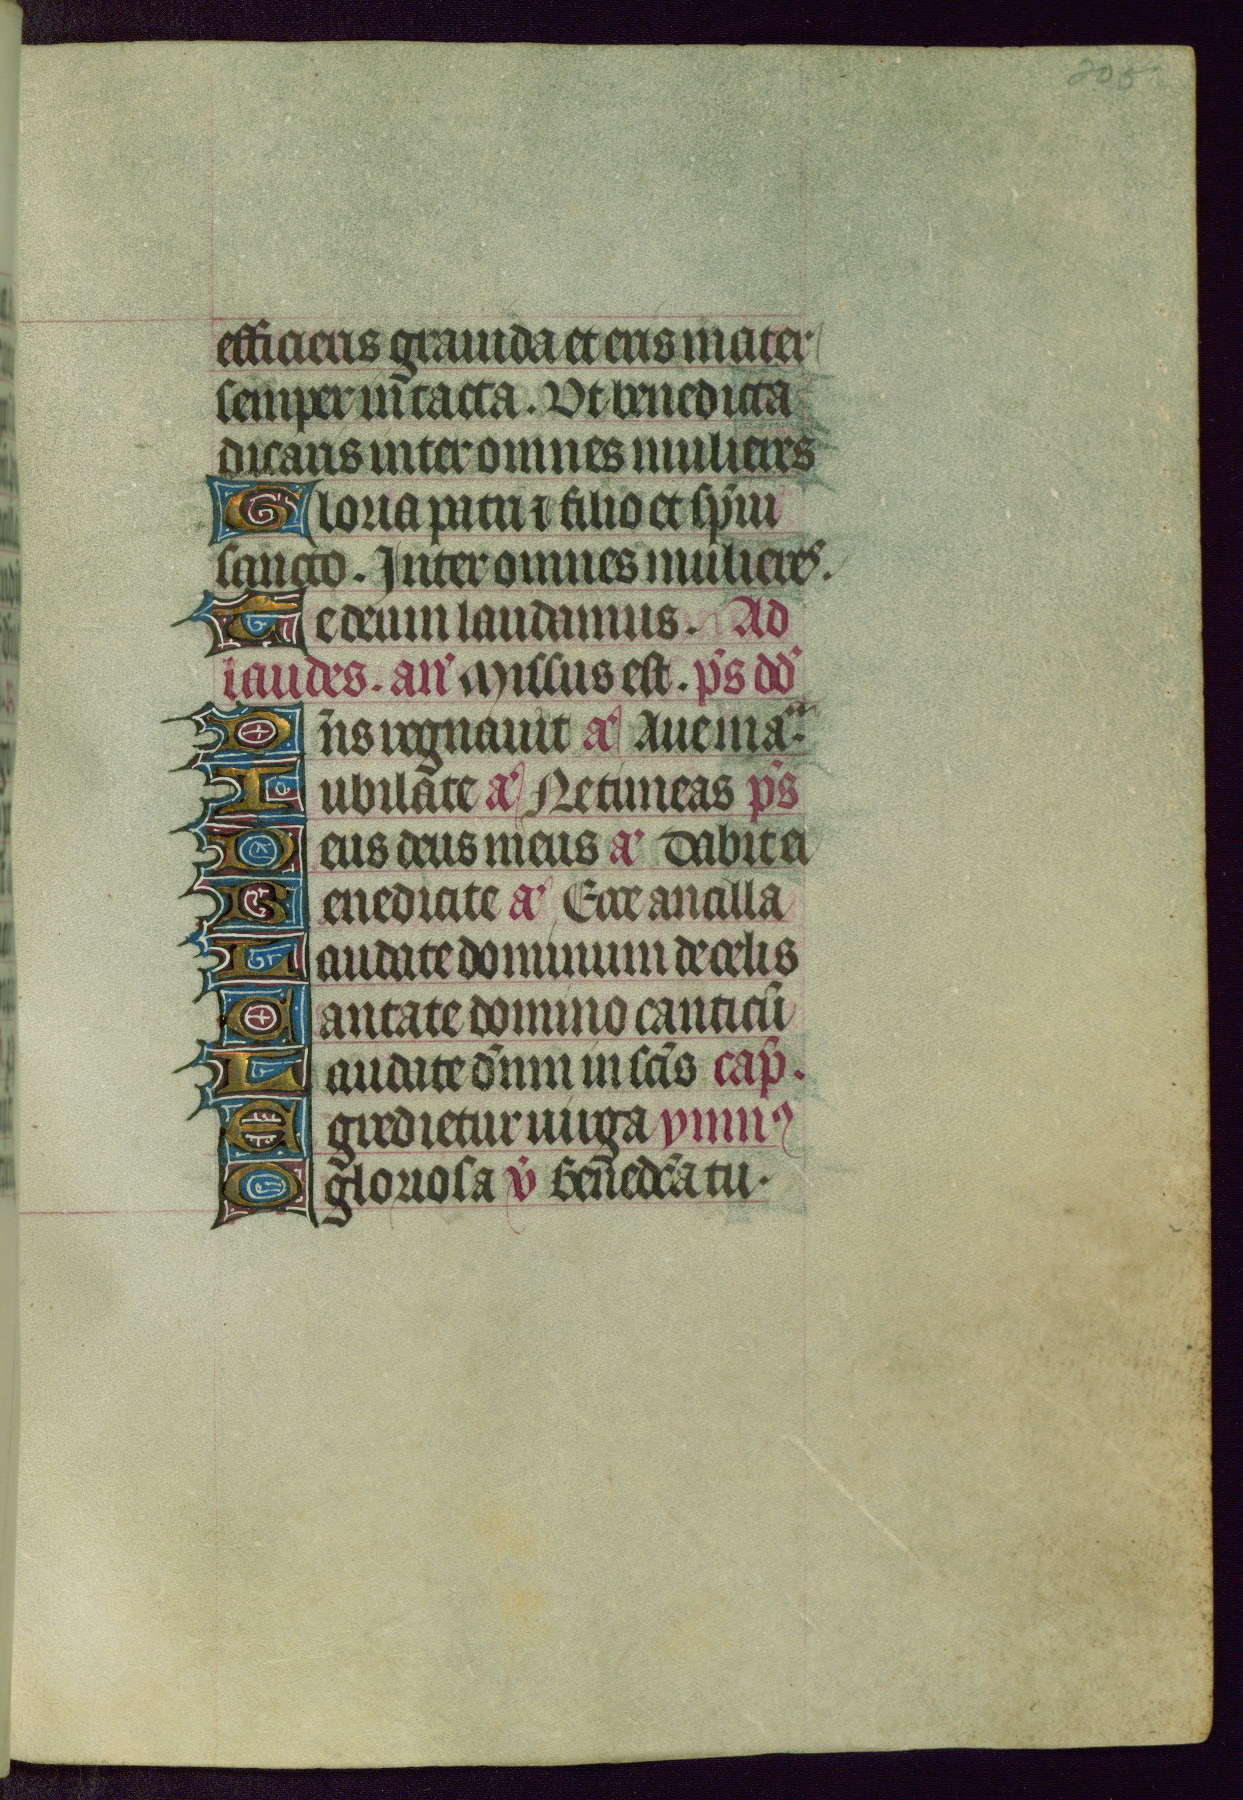 205
efficieris grauida et eris mater
semper in̄tacta. Vt benedicta
dicaris inter omnes mulieres
Gloria patri ⁊ filio et sp̄iu
sancto. Inter omnes mulieres.
Te deum laudamus. Ad
laudes. an̄ Missus est. ps̄ dd̄
Dn̄s regnauit a' Aue ma.
Iubilāte a' Ne timeas ps̄
Deus deus meus a' Dabit ei
Benedicite a' Ecce ancilla
Laudate dominum de celis
Cantate domino canticū
Laudate dn̄m in sc̄is cap̄.
Egredietur uirga ymnꝰ
O gloriosa v̄ Ben̄edc̄a tu.